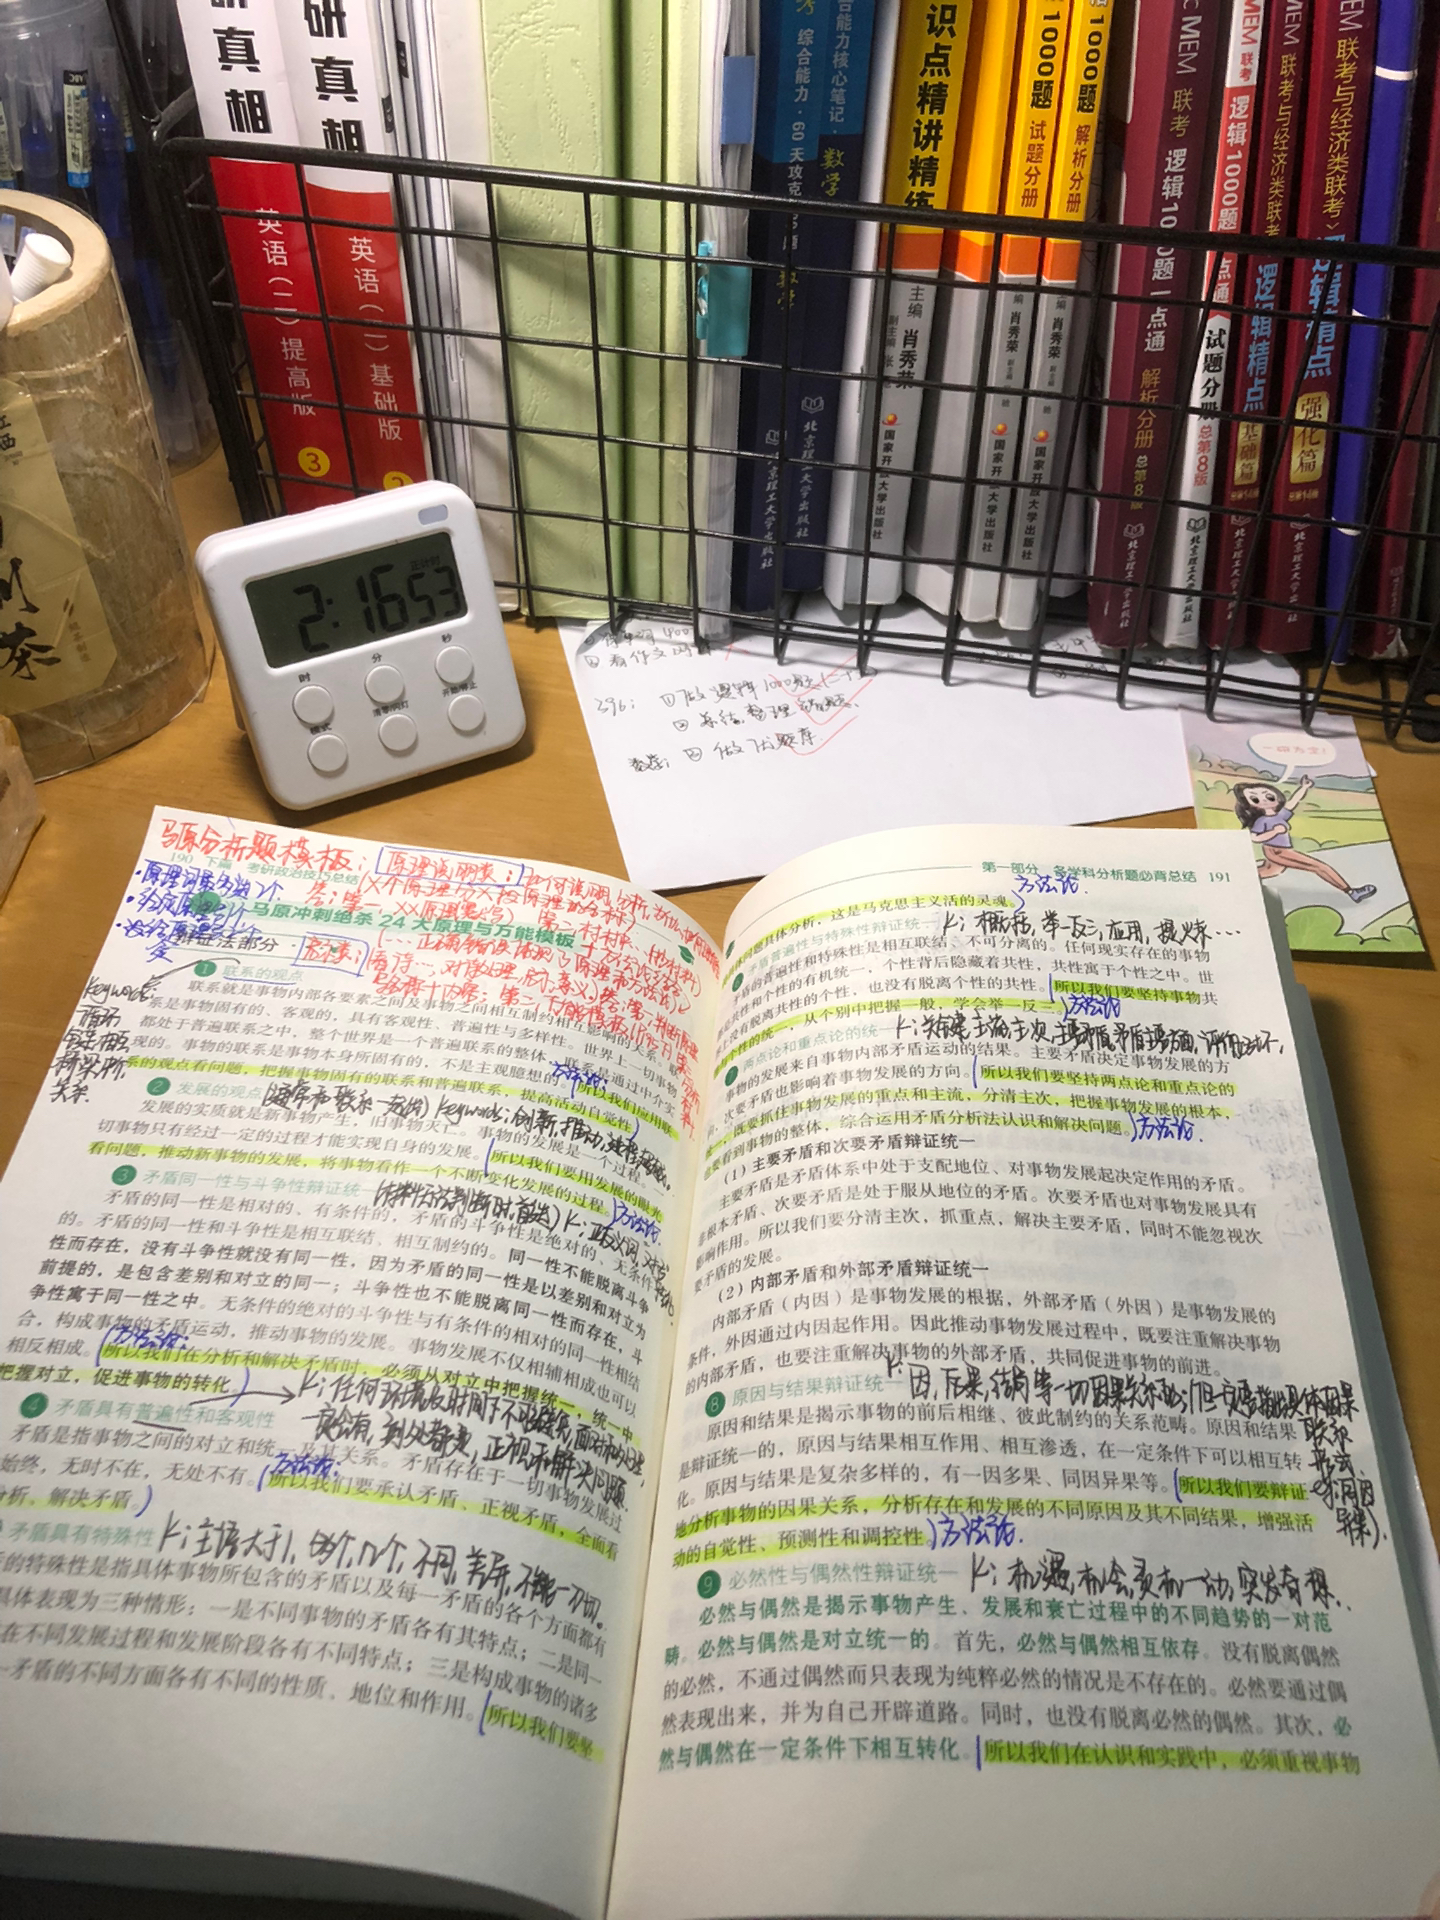 研真相
英语（二）提高版
3
研真相
英语（二）基础版
综合能力·60天攻克
北京理工大学出版社
合能力核心笔记·数学
北京理工大学出版社
识点精讲精练
主编 肖秀荣
国家开放大学出版社
1000题
试题分册
肖秀荣
国家开放大学出版社
1000题
解析分册
肖秀荣
国家开放大学出版社
MEM 联考 逻辑1000题一点通 解析分册 总第8版
北京理工大学出版社
MEM 联考
逻辑1000题 点通 试题分册 总第8版
北京理工大学出版社
MEM 联考与经济类联考
逻辑精点 基础篇
北京理工大学出版社
MEM 联考与经济类联考
逻辑精点 强化篇
北京理工大学出版社
正计时
2:1653
时 分 秒
模式 清零/闪灯 开始/停止
396：①做逻辑1000题
②总结，整理错题
一四为定！
马原分析题模板：
原理说明类：
190 下篇 考研政治技巧总结
马原冲刺绝杀 24 大原理与万能模板
辩证法部分
1 联系的观点
联系就是事物内部各要素之间及事物之间相互制约相互影响的关系。联
系是事物固有的、客观的，具有客观性、普遍性与多样性。世界上一切事物
都处于普遍联系之中，整个世界是一个普遍联系的整体，联系是通过中介实
现的。事物的联系是事物本身所固有的，不是主观臆想的。所以我们应用联
系的观点看问题，把握事物固有的联系和普遍联系，提高活动自觉性
Keywords：
循环
关系.
2 发展的观点（通常和联系一起做）Keywords：创新，推动，进程
发展的实质就是新事物产生，旧事物灭亡。事物的发展是一个过程。一
切事物只有经过一定的过程才能实现自身的发展。所以我们要用发展的眼光
看问题，推动新事物的发展，将事物看作一个不断变化发展的过程。方法论
3 矛盾同一性与斗争性辩证统一
矛盾的同一性是相对的、有条件的，矛盾的斗争性是绝对的、无条件
的。矛盾的同一性和斗争性是相互联结、相互制约的。同一性不能脱离斗争
性而存在，没有斗争性就没有同一性，因为矛盾的同一性是以差别和对立为
前提的，是包含差别和对立的同一；斗争性也不能脱离同一性而存在，斗
争性寓于同一性之中。无条件的绝对的斗争性与有条件的相对的同一性相结
合，构成事物的矛盾运动，推动事物的发展。事物发展不仅相辅相成也可以
方法论：
相反相成。所以我们在分析和解决矛盾时，必须从对立中把握统一，统一中
把握对立，促进事物的转化
4 矛盾具有普遍性和客观性
矛盾是指事物之间的对立和统一及其关系。矛盾存在于一切事物发展过
方法论：
始终，无时不在，无处不有。所以我们要承认矛盾、正视矛盾，全面看
分析、解决矛盾。
矛盾具有特殊性
的特殊性是指具体事物所包含的矛盾以及每一矛盾的各个方面都有
具体表现为三种情形：一是不同事物的矛盾各有其特点；二是同一
在不同发展过程和发展阶段各有不同特点；三是构成事物的诸多
矛盾的不同方面各有不同的性质、地位和作用。所以我们要坚
第一部分 各学科分析题必背总结 191
方法论.
具体问题具体分析，这是马克思主义活的灵魂。
矛盾普遍性与特殊性辩证统一 K：概括，举一反三，应用，提炼…
矛盾的普遍性和特殊性是相互联结、不可分离的。任何现实存在的事物
共性和个性的有机统一，个性背后隐藏着共性，共性寓于个性之中。世
上没有脱离共性的个性，也没有脱离个性的共性。所以我们要坚持事物共
个性的统一，从个别中把握一般，学会举一反三 方法论
两点论和重点论的统一
事物的发展来自事物内部矛盾运动的结果。主要矛盾决定事物发展的方
次要矛盾也影响着事物发展的方向。所以我们要坚持两点论和重点论的
统一，既要抓住事物发展的重点和主流，分清主次，把握事物发展的根本，
也要看到事物的整体，综合运用矛盾分析法认识和解决问题。方法论.
（1）主要矛盾和次要矛盾辩证统一
主要矛盾是矛盾体系中处于支配地位、对事物发展起决定作用的矛盾。
非根本矛盾、次要矛盾是处于服从地位的矛盾。次要矛盾也对事物发展具有
影响作用。所以我们要分清主次，抓重点，解决主要矛盾，同时不能忽视次
要矛盾的发展。
（2）内部矛盾和外部矛盾辩证统一
内部矛盾（内因）是事物发展的根据，外部矛盾（外因）是事物发展的
条件，外因通过内因起作用。因此推动事物发展过程中，既要注重解决事物
的内部矛盾，也要注重解决事物的外部矛盾，共同促进事物的前进。
8 原因与结果辩证统一
原因和结果是揭示事物的前后相继、彼此制约的关系范畴。原因和结果
是辩证统一的，原因与结果相互作用、相互渗透，在一定条件下可以相互转
化。原因与结果是复杂多样的，有一因多果、同因异果等。所以我们要辩证
地分析事物的因果关系，分析存在和发展的不同原因及其不同结果，增强活
动的自觉性、预测性和调控性。方法论.
9 必然性与偶然性辩证统一 K：机遇，机会，灵机一动，突发奇想..
必然与偶然是揭示事物产生、发展和衰亡过程中的不同趋势的一对范
畴。必然与偶然是对立统一的。首先，必然与偶然相互依存。没有脱离偶然
的必然，不通过偶然而只表现为纯粹必然的情况是不存在的。必然要通过偶
然表现出来，并为自己开辟道路。同时，也没有脱离必然的偶然。其次，必
然与偶然在一定条件下相互转化。所以我们在认识和实践中，必须重视事物